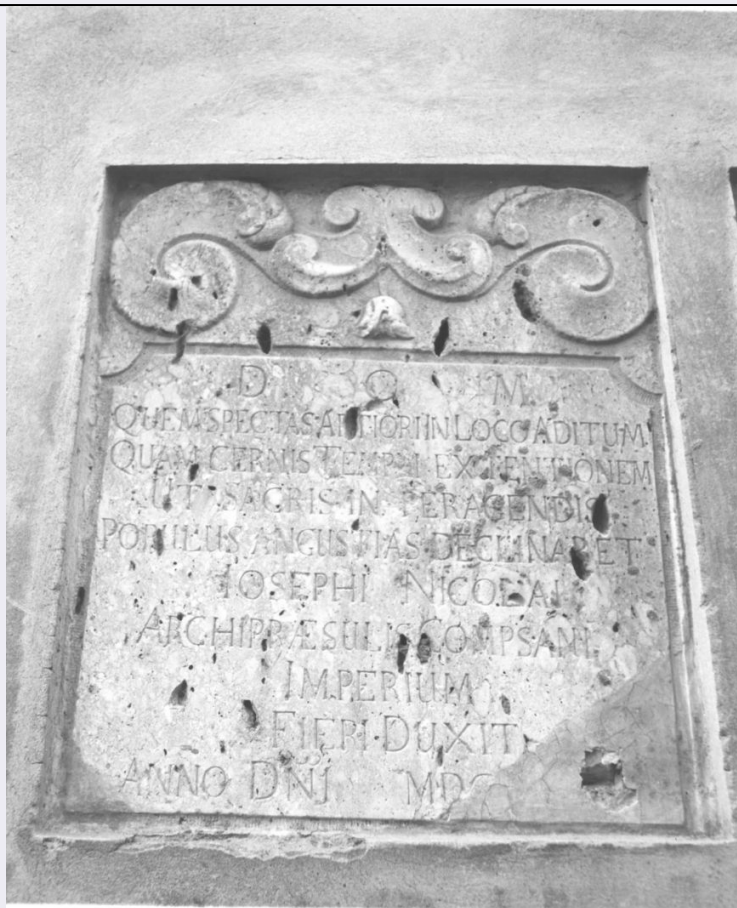 D O M
QUEM SPECTAS ALTIORI IN LOCO ADITUM
QUAM CERNIS TEMPLI EXTENTIONEM
UT SACRIS IN PERAGENDIS
POPULUS ANGUSTIAS DECLINARET
IOSEPHI NICOLAI
ARCHIPRÆSULIS COMPSANI
IMPERIUM
FIERI DUXIT
ANNO DNI